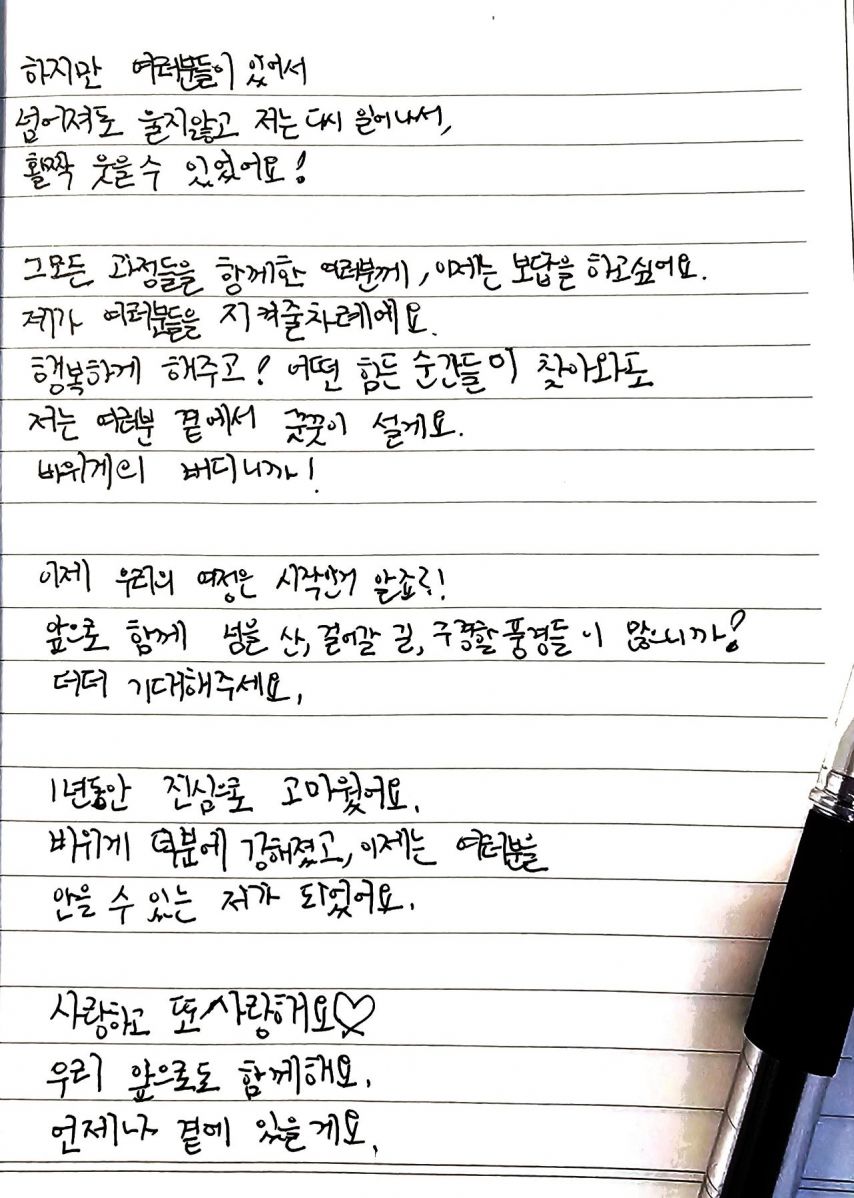 하지만 여러분들이 있어서
넘어져도 울지않고 저는 다시 일어나서,
활짝 웃을수 있었어요!
그모든 과정들을 함께한 여러분께, 이제는 보답을 하고싶어요.
제가 여러분들을 지켜줄차례에요.
행복하게 해주고! 어떤 힘든 순간들이 찾아와도
저는 여러분 곁에서 꿋꿋이 설게요.
바위게의 버디니까!
이제 우리의 여정은 시작인거 알죠?!
앞으로 함께 넘을 산, 걸어갈 길, 구경할 풍경들이 많으니까!
더더 기대해주세요.
1년동안 진심으로 고마웠어요.
바위게 덕분에 강해졌고, 이제는 여러분을
안을 수 있는 저가 되었어요.
사랑하고 또 사랑해요♡
우리 앞으로도 함께해요.
언제나 곁에 있을게요.